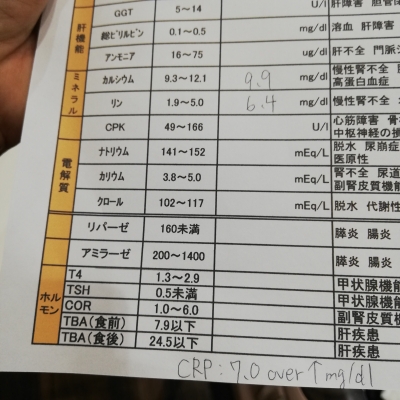 肝機能
GGT 5~14 U/l 肝障害 胆管
総ビリルビン 0.1~0.5 mg/dl 溶血 肝障害
アンモニア 16~75 ug/dl 肝不全 門脈
ミネラル
カルシウム 9.3~12.1 9.9 mg/dl 慢性腎不全
高蛋白血症
リン 1.9~5.0 6.4 mg/dl 慢性腎不全
CPK 49~166 U/l 心筋障害 骨
中枢神経の損
電解質
ナトリウム 141~152 mEq/L 脱水 尿崩症
医原性
カリウム 3.8~5.0 mEq/L 腎不全 尿道
副腎皮質機能
クロール 102~117 mEq/L 脱水 代謝性
リパーゼ 160未満 膵炎 腸炎
アミラーゼ 200~1400 膵炎 腸炎
ホルモン
T4 1.3~2.9 甲状腺機能
TSH 0.5未満 甲状腺機能
COR 1.0~6.0 副腎皮質機
TBA(食前) 7.9以下 肝疾患
TBA(食後) 24.5以下 肝疾患
CRP: 7.0 over↑ mg/dl